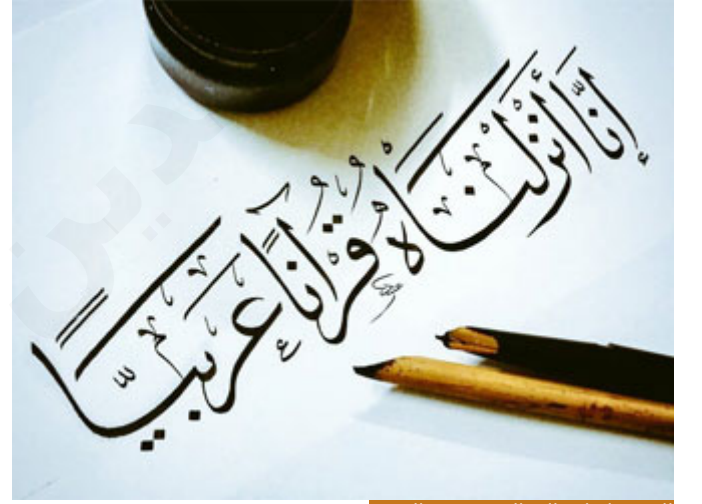 إِنَّا أَنْزَلْنَاهُ قُرْآنًا عَرَبِيًّا